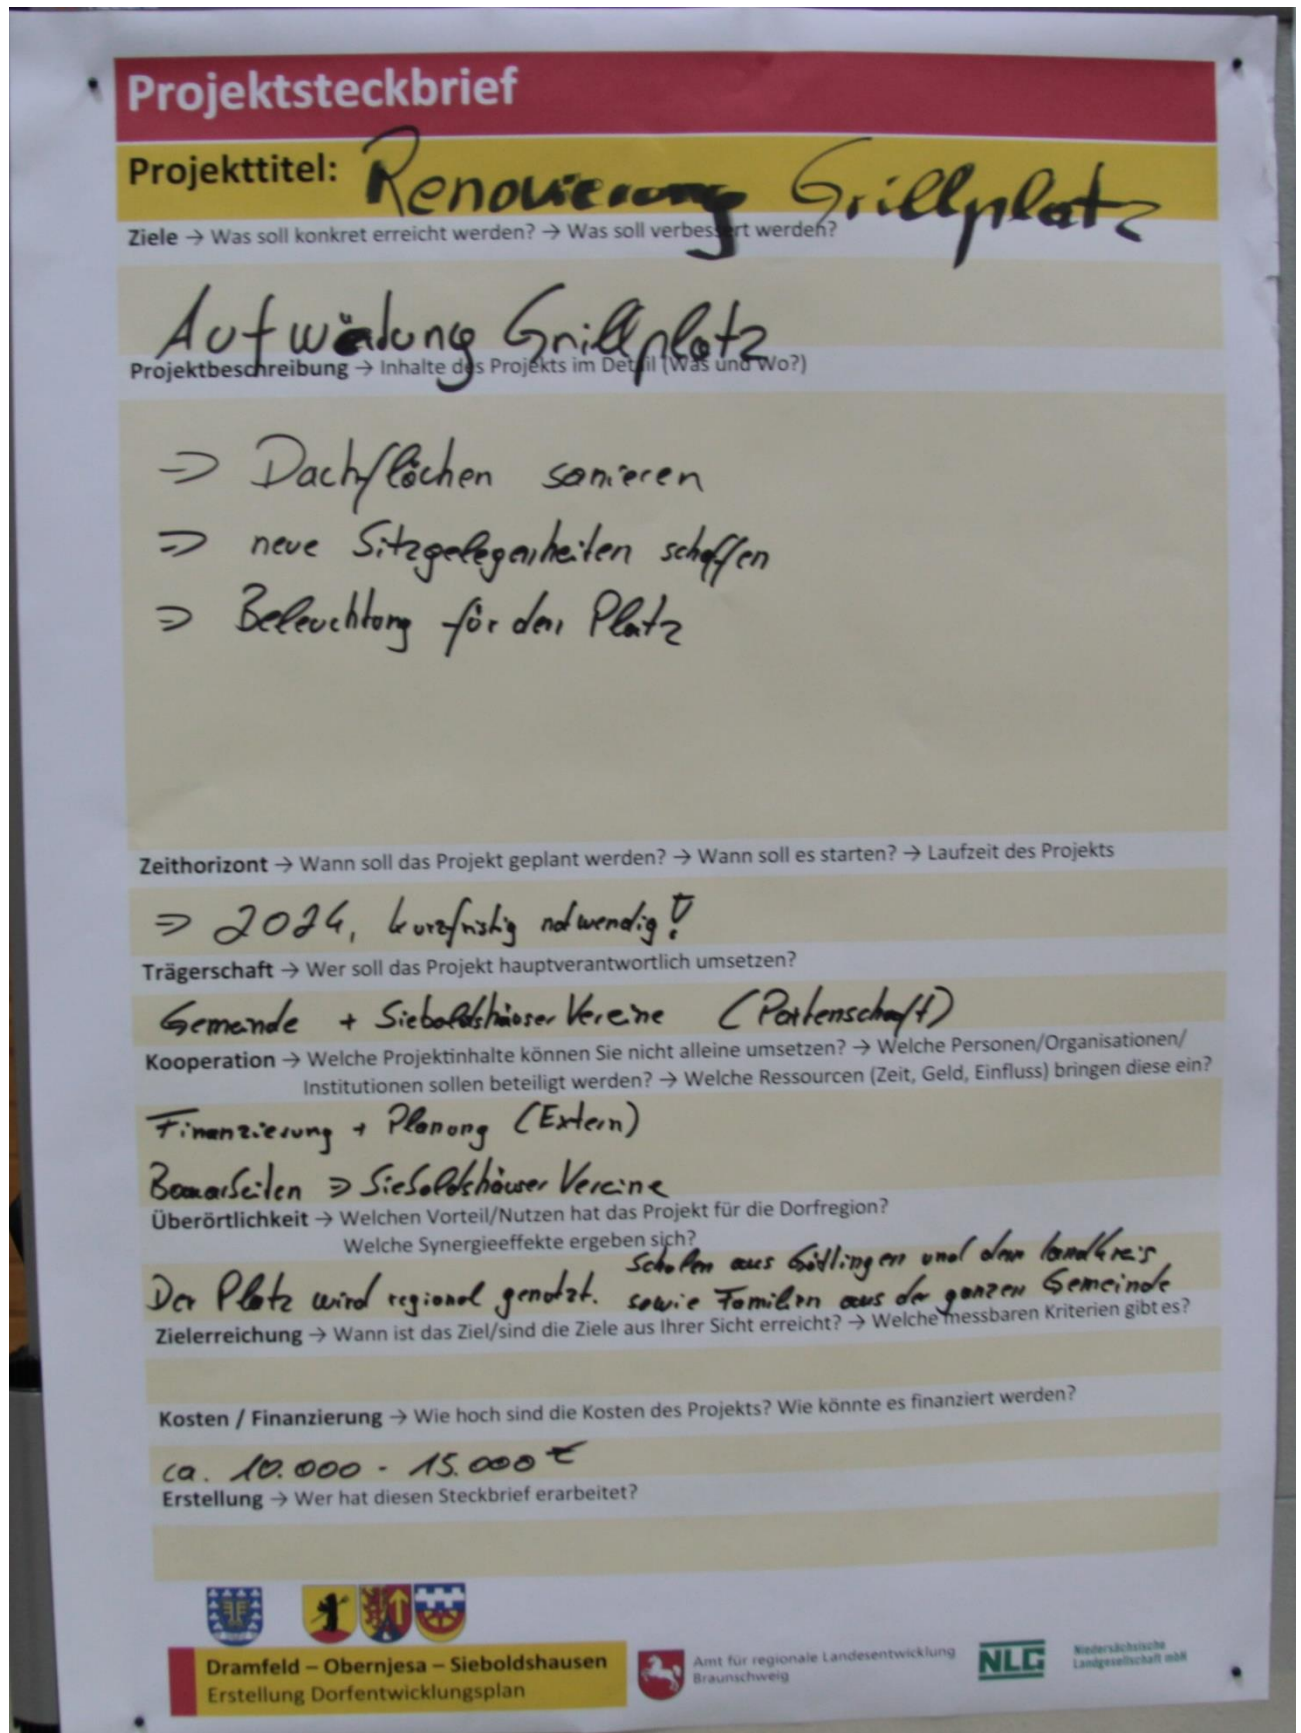 Projektsteckbrief
Projekttitel: Renovierung Grillplatz
Ziele → Was soll konkret erreicht werden? → Was soll verbessert werden?
Aufwertung Grillplatz
Projektbeschreibung → Inhalte des Projekts im Detail (Was und Wo?)
⇒ Dachflächen sanieren
⇒ neue Sitzgelegenheiten schaffen
⇒ Beleuchtung für den Platz
Zeithorizont → Wann soll das Projekt geplant werden? → Wann soll es starten? → Laufzeit des Projekts
⇒ 2024, kurzfristig notwendig!
Trägerschaft → Wer soll das Projekt hauptverantwortlich umsetzen?
Gemeinde + Sieboldshäuser Vereine (Patenschaft)
Kooperation → Welche Projektinhalte können Sie nicht alleine umsetzen? → Welche Personen/Organisationen/
Institutionen sollen beteiligt werden? → Welche Ressourcen (Zeit, Geld, Einfluss) bringen diese ein?
Finanzierung + Planung (Extern)
Bauarbeiten ⇒ Sieboldshäuser Vereine
Überörtlichkeit → Welchen Vorteil/Nutzen hat das Projekt für die Dorfregion?
Welche Synergieeffekte ergeben sich?
Der Platz wird regional genutzt. Schulen aus Göttingen und dem Landkreis
sowie Familien aus der ganzen Gemeinde
Zielerreichung → Wann ist das Ziel/sind die Ziele aus Ihrer Sicht erreicht? → Welche messbaren Kriterien gibt es?
Kosten / Finanzierung → Wie hoch sind die Kosten des Projekts? Wie könnte es finanziert werden?
ca. 10.000 - 15.000 €
Erstellung → Wer hat diesen Steckbrief erarbeitet?
Dramfeld – Obernjesa – Sieboldshausen
Erstellung Dorfentwicklungsplan
Amt für regionale Landesentwicklung
Braunschweig
NLG
Niedersächsische
Landgesellschaft mbH